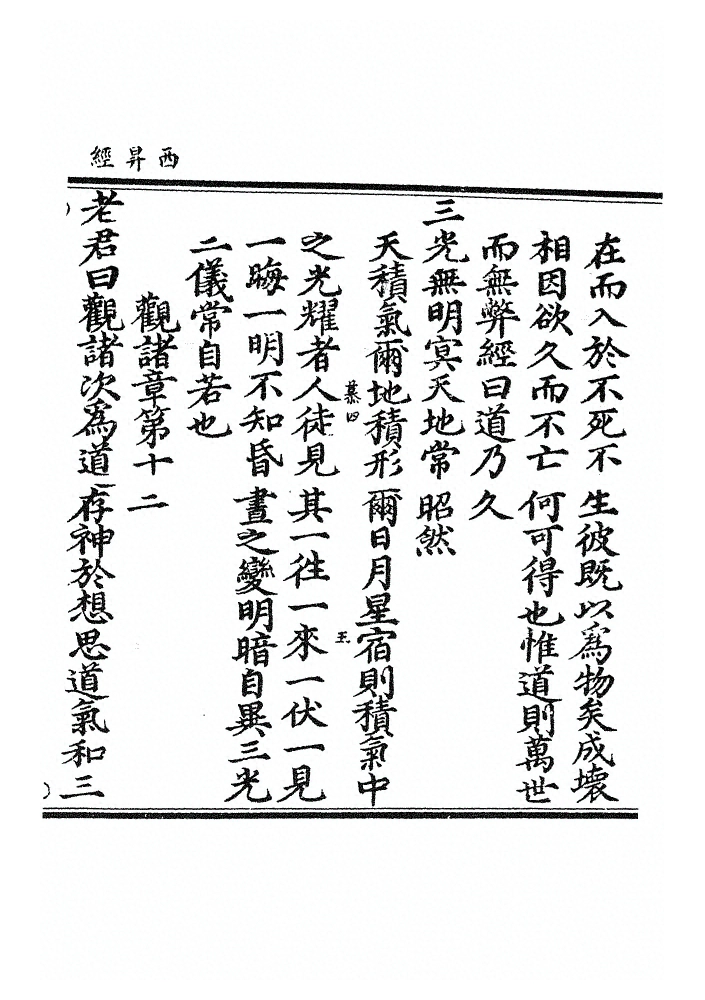 西昇經
在而入於不死不生彼既以為物矣成壞
相因欲久而不亡何可得也惟道則萬世
而無弊經曰道乃久
三光無明冥天地常昭然
天積氣爾地積形爾日月星宿則積氣中
之光耀者人徒見其一徃一來一伏一見
一晦一明不知昏晝之變明暗自異三光
二儀常自若也
觀諸章第十二
老君曰觀諸次為道存神於想思道氣和三
慕四
王